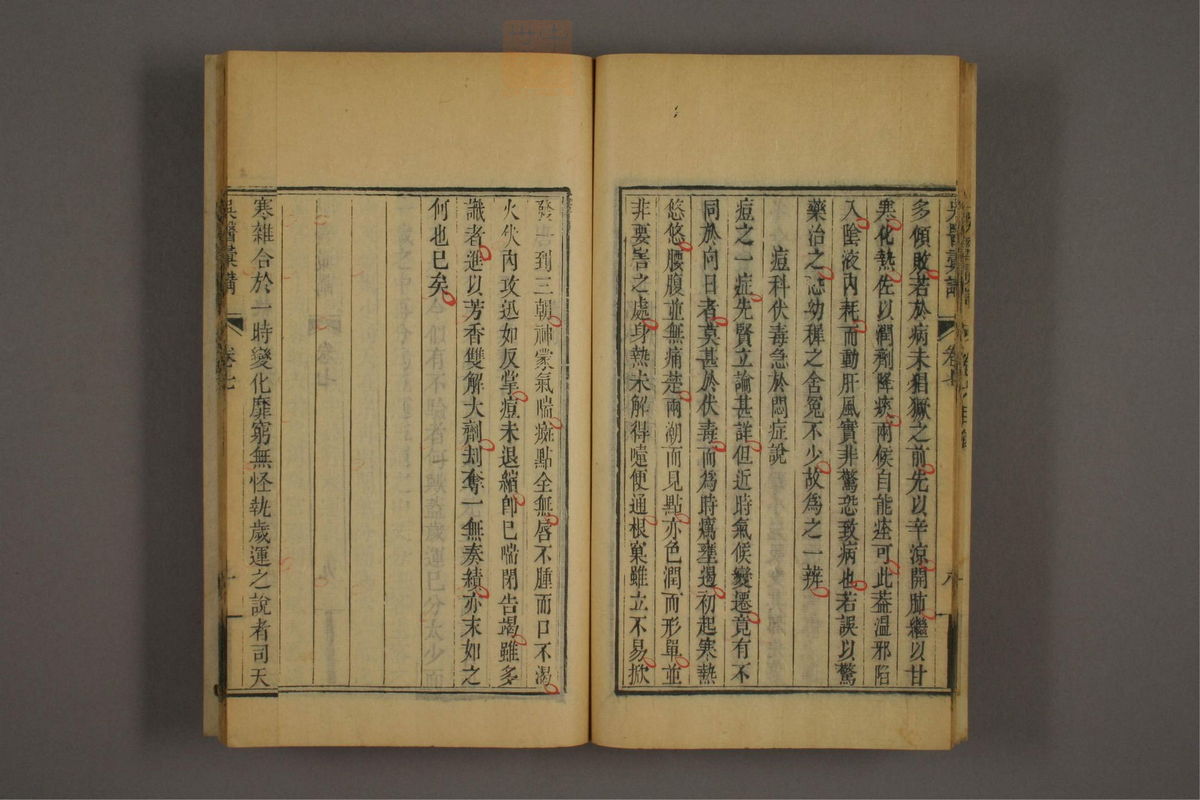 多傾敗若於病未猖獗之前先以辛涼開肺繼以甘
寒化熱佐以潤劑降痰兩候自能痊可此葢溫邪陷
入陰液內耗而動肝風實非驚恐致病也若誤以驚
藥治之恐幼穉之含冤不少故為之一辨
痘科伏毒急於悶症說
痘之一症先賢立論甚詳但近時氣候變遷竟有不
同於向日者莫甚於伏毒而為時癘壅遏初起寒熱
悠悠腰腹並無痛楚兩潮而見點亦色潤而形單並
非要害之處身熱未解得嚏便通根窠雖立不易掀
發到三朝神蒙氣喘癍點全無唇不腫而口不渴
火伏內攻迅如反掌痘未退縮卽已喘閉告竭雖多
識者進以芳香雙解大劑刦奪一無奏績亦末如之
何也已矣
寒雜合於一時變化靡窮無怪執歲運之說者司天
吳醫彙講
卷七